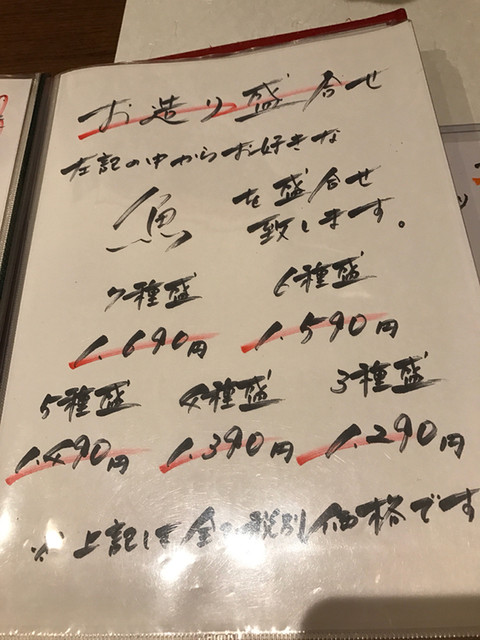 お造り盛合せ
左記の中からお好きな
魚 を盛合せ
致します。
7種盛 6種盛
1.690円 1.590円
5種盛 4種盛 3種盛
1.490円 1.390円 1.290円
※上記は全て税別価格です